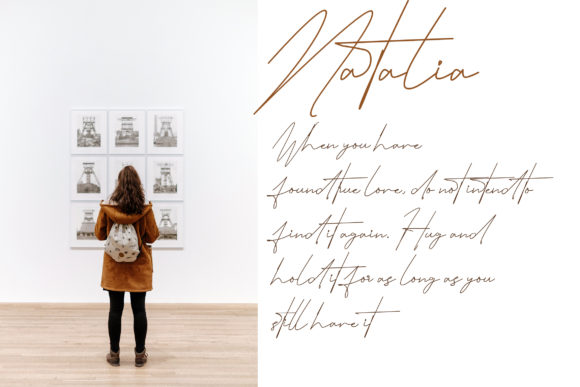 Natalia
When you have
found true love, do not intend to
find it again. Hug and
hold it for as long as you
still have it